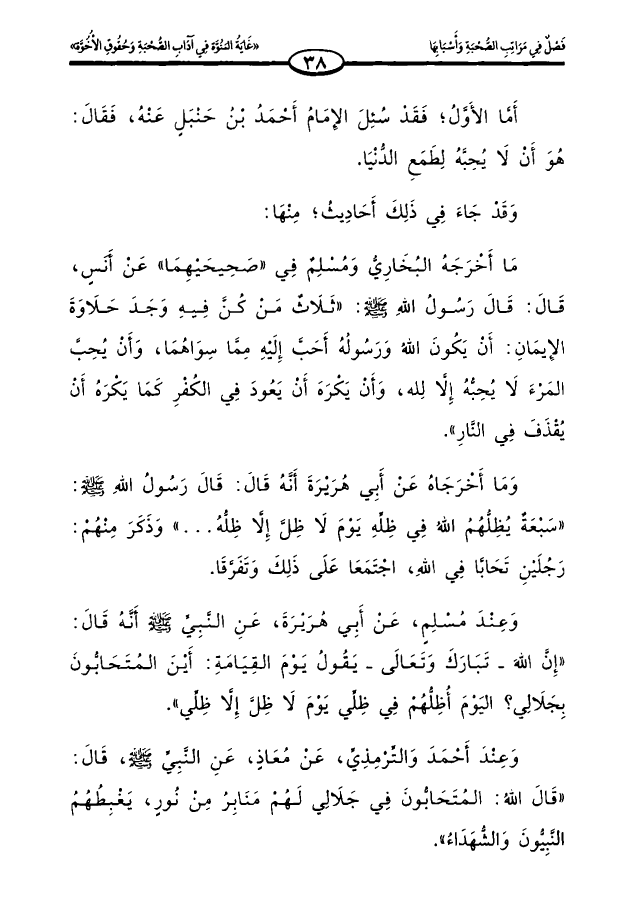 فَصْلٌ فِي مَرَاتِبِ الصُّحْبَةِ وَأَسْبَابِهَا
٣٨
«غَايَةُ المُنُوَّة فِي آدَابِ الصُّحْبَةِ وَحُقُوقِ الأُخُوَّة»
أَمَّا الأَوَّلُ؛ فَقَدْ سُئِلَ الإِمَامُ أَحْمَدُ بْنُ حَنْبَلٍ عَنْهُ، فَقَالَ:
هُوَ أَنْ لَا يُحِبَّهُ لِطَمَعِ الدُّنْيَا.
وَقَدْ جَاءَ فِي ذَلِكَ أَحَادِيثُ؛ مِنْهَا:
مَا أَخْرَجَهُ البُخَارِيُّ وَمُسْلِمٌ فِي «صَحِيحَيْهِمَا» عَنْ أَنَسٍ،
قَالَ: قَالَ رَسُولُ اللهِ ﷺ: «ثَلَاثٌ مَنْ كُنَّ فِيهِ وَجَدَ حَلَاوَةَ
الإِيمَانِ: أَنْ يَكُونَ اللهُ وَرَسُولُهُ أَحَبَّ إِلَيْهِ مِمَّا سِوَاهُمَا، وَأَنْ يُحِبَّ
المَرْءَ لَا يُحِبُّهُ إِلَّا لِله، وَأَنْ يَكْرَهَ أَنْ يَعُودَ فِي الكُفْرِ كَمَا يَكْرَهُ أَنْ
يُقْذَفَ فِي النَّارِ».
وَمَا أَخْرَجَاهُ عَنْ أَبِي هُرَيْرَةَ أَنَّهُ قَالَ: قَالَ رَسُولُ اللهِ ﷺ:
«سَبْعَةٌ يُظِلُّهُمُ اللهُ فِي ظِلِّهِ يَوْمَ لَا ظِلَّ إِلَّا ظِلُّهُ...» وَذَكَرَ مِنْهُمْ:
رَجُلَيْنِ تَحَابَّا فِي اللهِ، اجْتَمَعَا عَلَى ذَلِكَ وَتَفَرَّقَا.
وَعِنْدَ مُسْلِمٍ، عَنْ أَبِي هُرَيْرَةَ، عَنِ النَّبِيِّ ﷺ أَنَّهُ قَالَ:
«إِنَّ اللهَ - تَبَارَكَ وَتَعَالَى - يَقُولُ يَوْمَ القِيَامَةِ: أَيْنَ المُتَحَابُّونَ
بِجَلَالِي؟ اليَوْمَ أُظِلُّهُمْ فِي ظِلِّي يَوْمَ لَا ظِلَّ إِلَّا ظِلِّي».
وَعِنْدَ أَحْمَدَ وَالتِّرْمِذِيِّ، عَنْ مُعَاذٍ، عَنِ النَّبِيِّ ﷺ، قَالَ:
«قَالَ اللهُ: المُتَحَابُّونَ فِي جَلَالِي لَهُمْ مَنَابِرُ مِنْ نُورٍ، يَغْبِطُهُمُ
النَّبِيُّونَ وَالشُّهَدَاءُ».